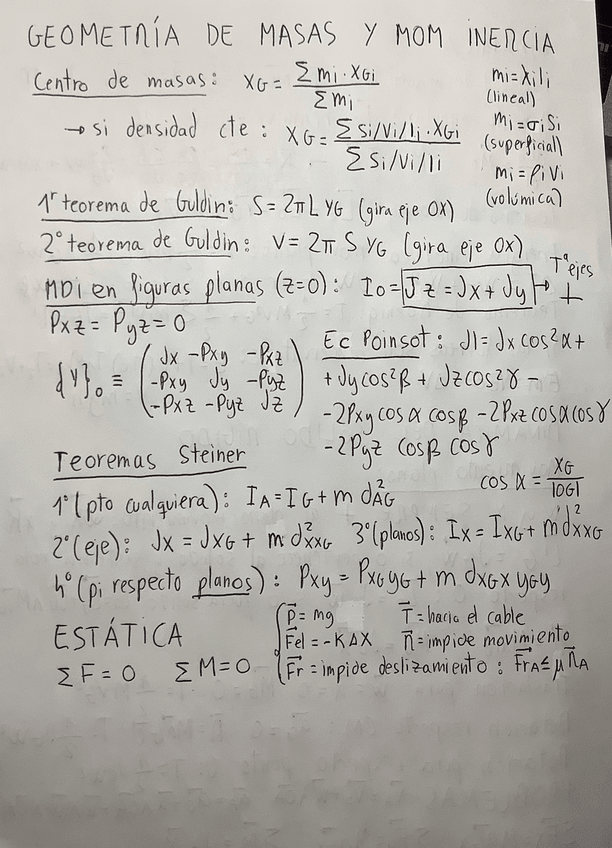 GEOMETRÍA DE MASAS Y MOM INERCIA
Centro de masas: XG = Σ mi · XGi / Σ mi
mi = λi li
(lineal)
→ si densidad cte: XG = Σ Si/Vi/li · XGi / Σ Si/Vi/li
mi = σi Si
(superficial)
mi = ρi Vi
(volúmica)
1º teorema de Guldin: S = 2π L YG (gira eje OX)
2º teorema de Guldin: V = 2π S YG (gira eje OX)
MDi en figuras planas (z=0): Io = Jz = Jx + Jy → Tª ejes ⊥
Pxz = Pyz = 0
{Y}o ≡
( Jx -Pxy -Pxz
-Pxy Jy -Pyz
-Pxz -Pyz Jz )
Ec Poinsot: Jl = Jx cos²α +
+ Jy cos²β + Jz cos²γ -
-2Pxy cos α cos β - 2Pxz cos α cos γ
-2Pyz cos β cos γ
cos α = XG / |OG|
Teoremas Steiner
1º (pto cualquiera): IA = IG + m d²AG
2º (eje): Jx = JxG + m d²xxG 3º (planos): Ix = IxG + m d²xxG
4º (pi respecto planos): Pxy = PxGyG + m dxGx yGy
ESTÁTICA
ΣF = 0 ΣM = 0
P⃗ = mg T⃗ = hacia el cable
F⃗el = -KΔX n⃗ = impide movimiento
F⃗r = impide deslizamiento : F⃗rA ≤ μ n⃗A